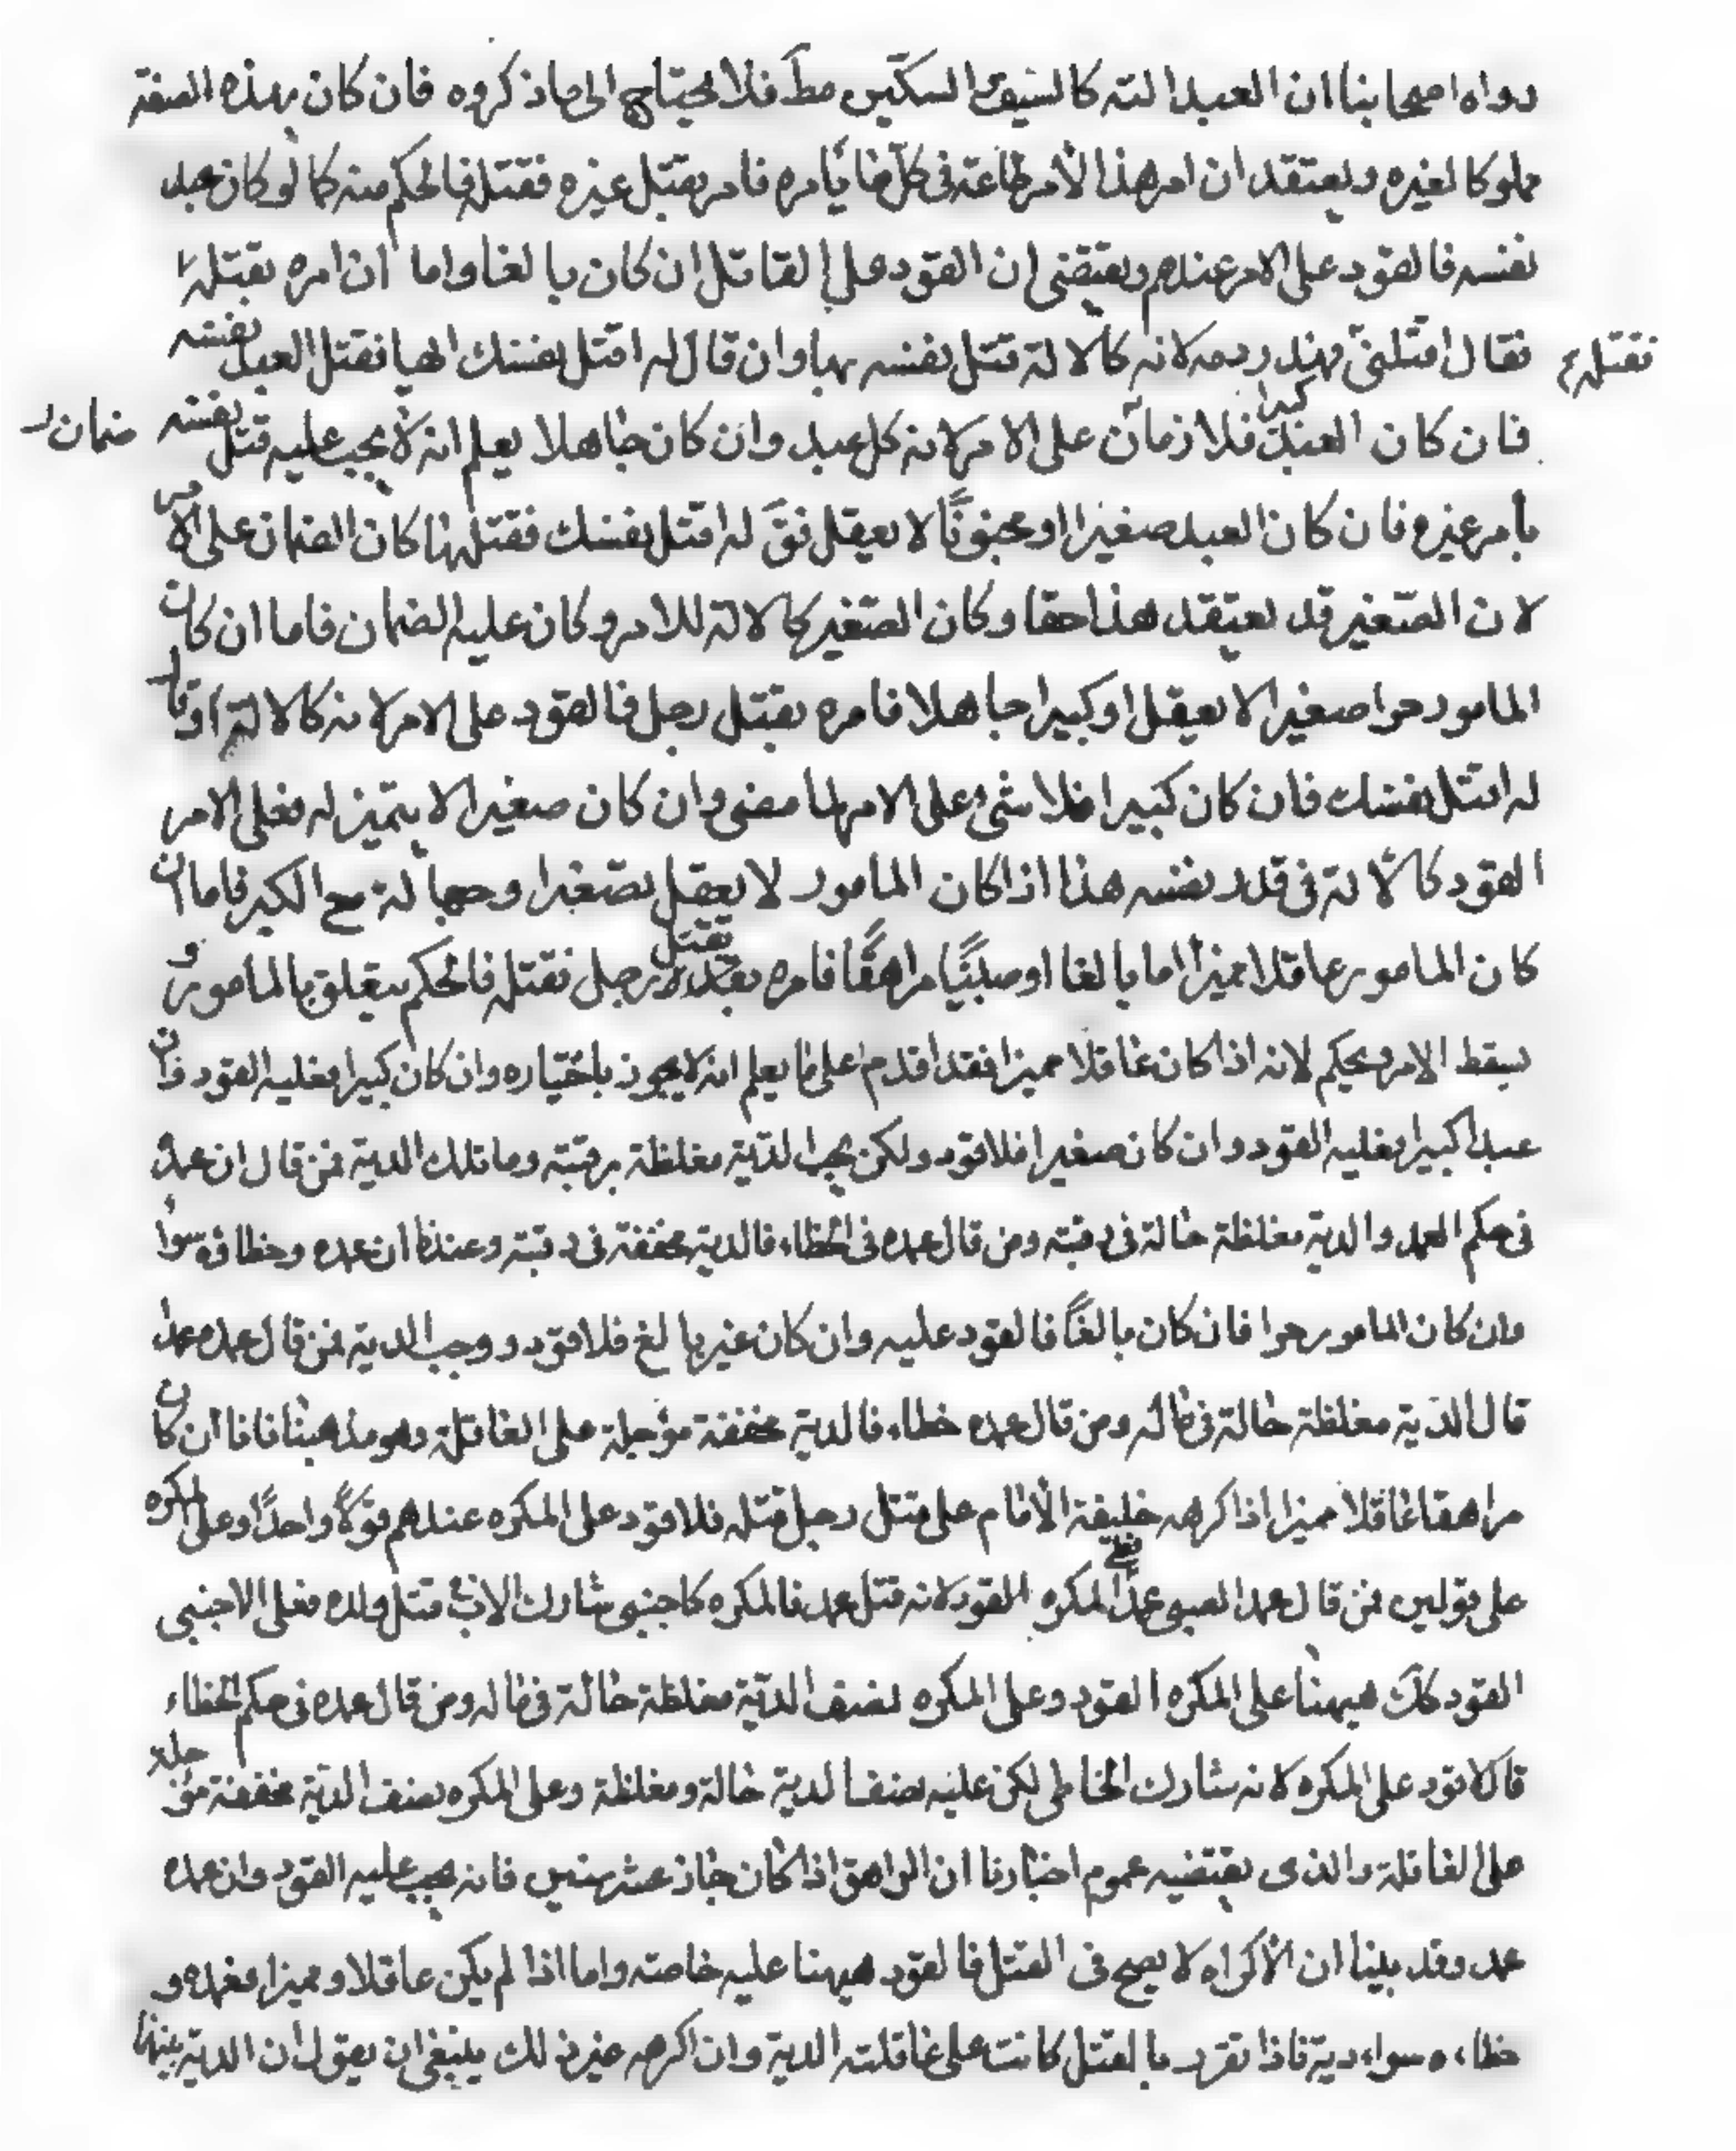 رواه اصحابنا ان العبد الته كالسيف السكين مط فلا يحتاج الى ما ذكروه فان كان بهذه الصفة
مملوكا لغيره ويعتقد ان امر هذا الأمر طاعة فى كل ما يأمره فامر بقتل غيره فقتله فالحكم منه كما لو كان عبد
نفسه فالقود على الامر عندهم ويقتضى ان القود على القاتل ان كان بالغا واما ان امره بقتله
فقال اقتلنى فهدر دمه لانه كالالة قتل نفسه بها وان قال له اقتل نفسك ايها فقتل العبد نفسه
فقتله
فان كان العبد كبيرا فلا زمان على الامر لانه كل عبد وان كان جاهلا يعلم انه لا يجب عليه قتل نفسه
ضمان
بأمر غيره فان كان العبد صغيرا او مجنونًا لا يعقل فقَ له اقتل نفسك فقتلها كان الضمان على الامر
لان الصّغير قد يعتقد هذا حقا وكان الصّغير كالالة للامر وكان عليه الضمان فاما ان كان
المامور حرا صغيرا لا يعقل او كبيرا جاهلا فامره بقتل رجل فالقود على الامر لانه كالالة او قال
له اقتل نفسك فان كان كبيرا فلا شئ على الامر لما مضى وان كان صغيرا لا يتميز له فعلى الامر
القود كالالة فى قتل نفسه هذا اذا كان المامور لا يعقل بصغيرا وجهالة مع الكبر فاما ان
كان المامور عاقلا مميزا اما بالغا او صبيًا مراهقًا فامره بقتل رجل فقتله فالحكم يتعلق بالمامور و
سقط الامر وحكم لانه اذا كان عاقلا مميزا فقد اقدم على ما يعلم انه لا يجوز باختياره وان كان كبيرا فعليه القود وان
عبدا كبيرا فعليه القود وان كان صغيرا فلا قود ولكن يجب الدّية مغلظة برقبته وما تلك الدية فمن قال ان عمده
فى حكم العمد والدية مغلظة حالة فى رقبته ومن قال عمده فى الخطاء فالدية مخففة فى رقبته وعندنا ان عمده وخطاؤه سوا
وان كان المامور حرا فان كان بالغًا فالقود عليه وان كان غير بالغ فلا قود ووجب الدية فمن قال عمده عمدا
قال الدّية مغلظة حالة فى ماله ومن قال عمده خطاء فالدية مخففة مؤجلة على العاقلة وهو مذهبنا فاما ان كان
مراهقا عاقلا مميزا اذا كرهه خليفة الأمام على قتل رجل قتله فلا قود على المكره عندهم قولًا واحدًا وعلى المكره
على قولين فمن قال عمد الصبى عمدًا فعلى المكره القود لانه قتل عمد فالمكره كاجنبى شارك الاب فى قتل ولده فعلى الاجنبى
القود كك هيهنا على المكره القود وعلى المكره نصف الدّية مغلظة حالة فى ماله ومن قال عمده فى حكم الخطاء
قال لا قود على المكره لانه شارك الخاطى لكن عليه نصف الدية حالة ومغلظة وعلى المكره نصف الدّية مخففة مؤجلة
على العاقلة والذى يقتضيه عموم اخبارنا ان المراهق اذا كان جاز عشر سنين فانه يجب عليه القود وان عمده
عمد وقد بينا ان الأكراه لا يصح فى القتل فالقود هيهنا عليه خاصته واما اذا لم يكن عاقلا و مميزا فعمده و
خطاءه سواء دية فاذا تفرد بالقتل كانت على عاقلته الدية وان اكرهه غير ذلك ينبغى ان يقول ان الدية بينهما